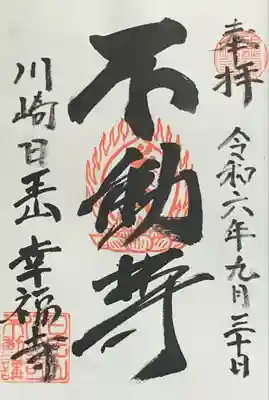 奉拝
令和六年九月三十日
不動尊
川崎日吉 幸福寺